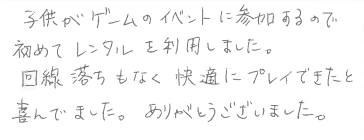 子供がゲームのイベントに参加するので
初めてレンタルを利用しました。
回線落ちもなく快適にプレイできたと
喜んでました。ありがとうございました。